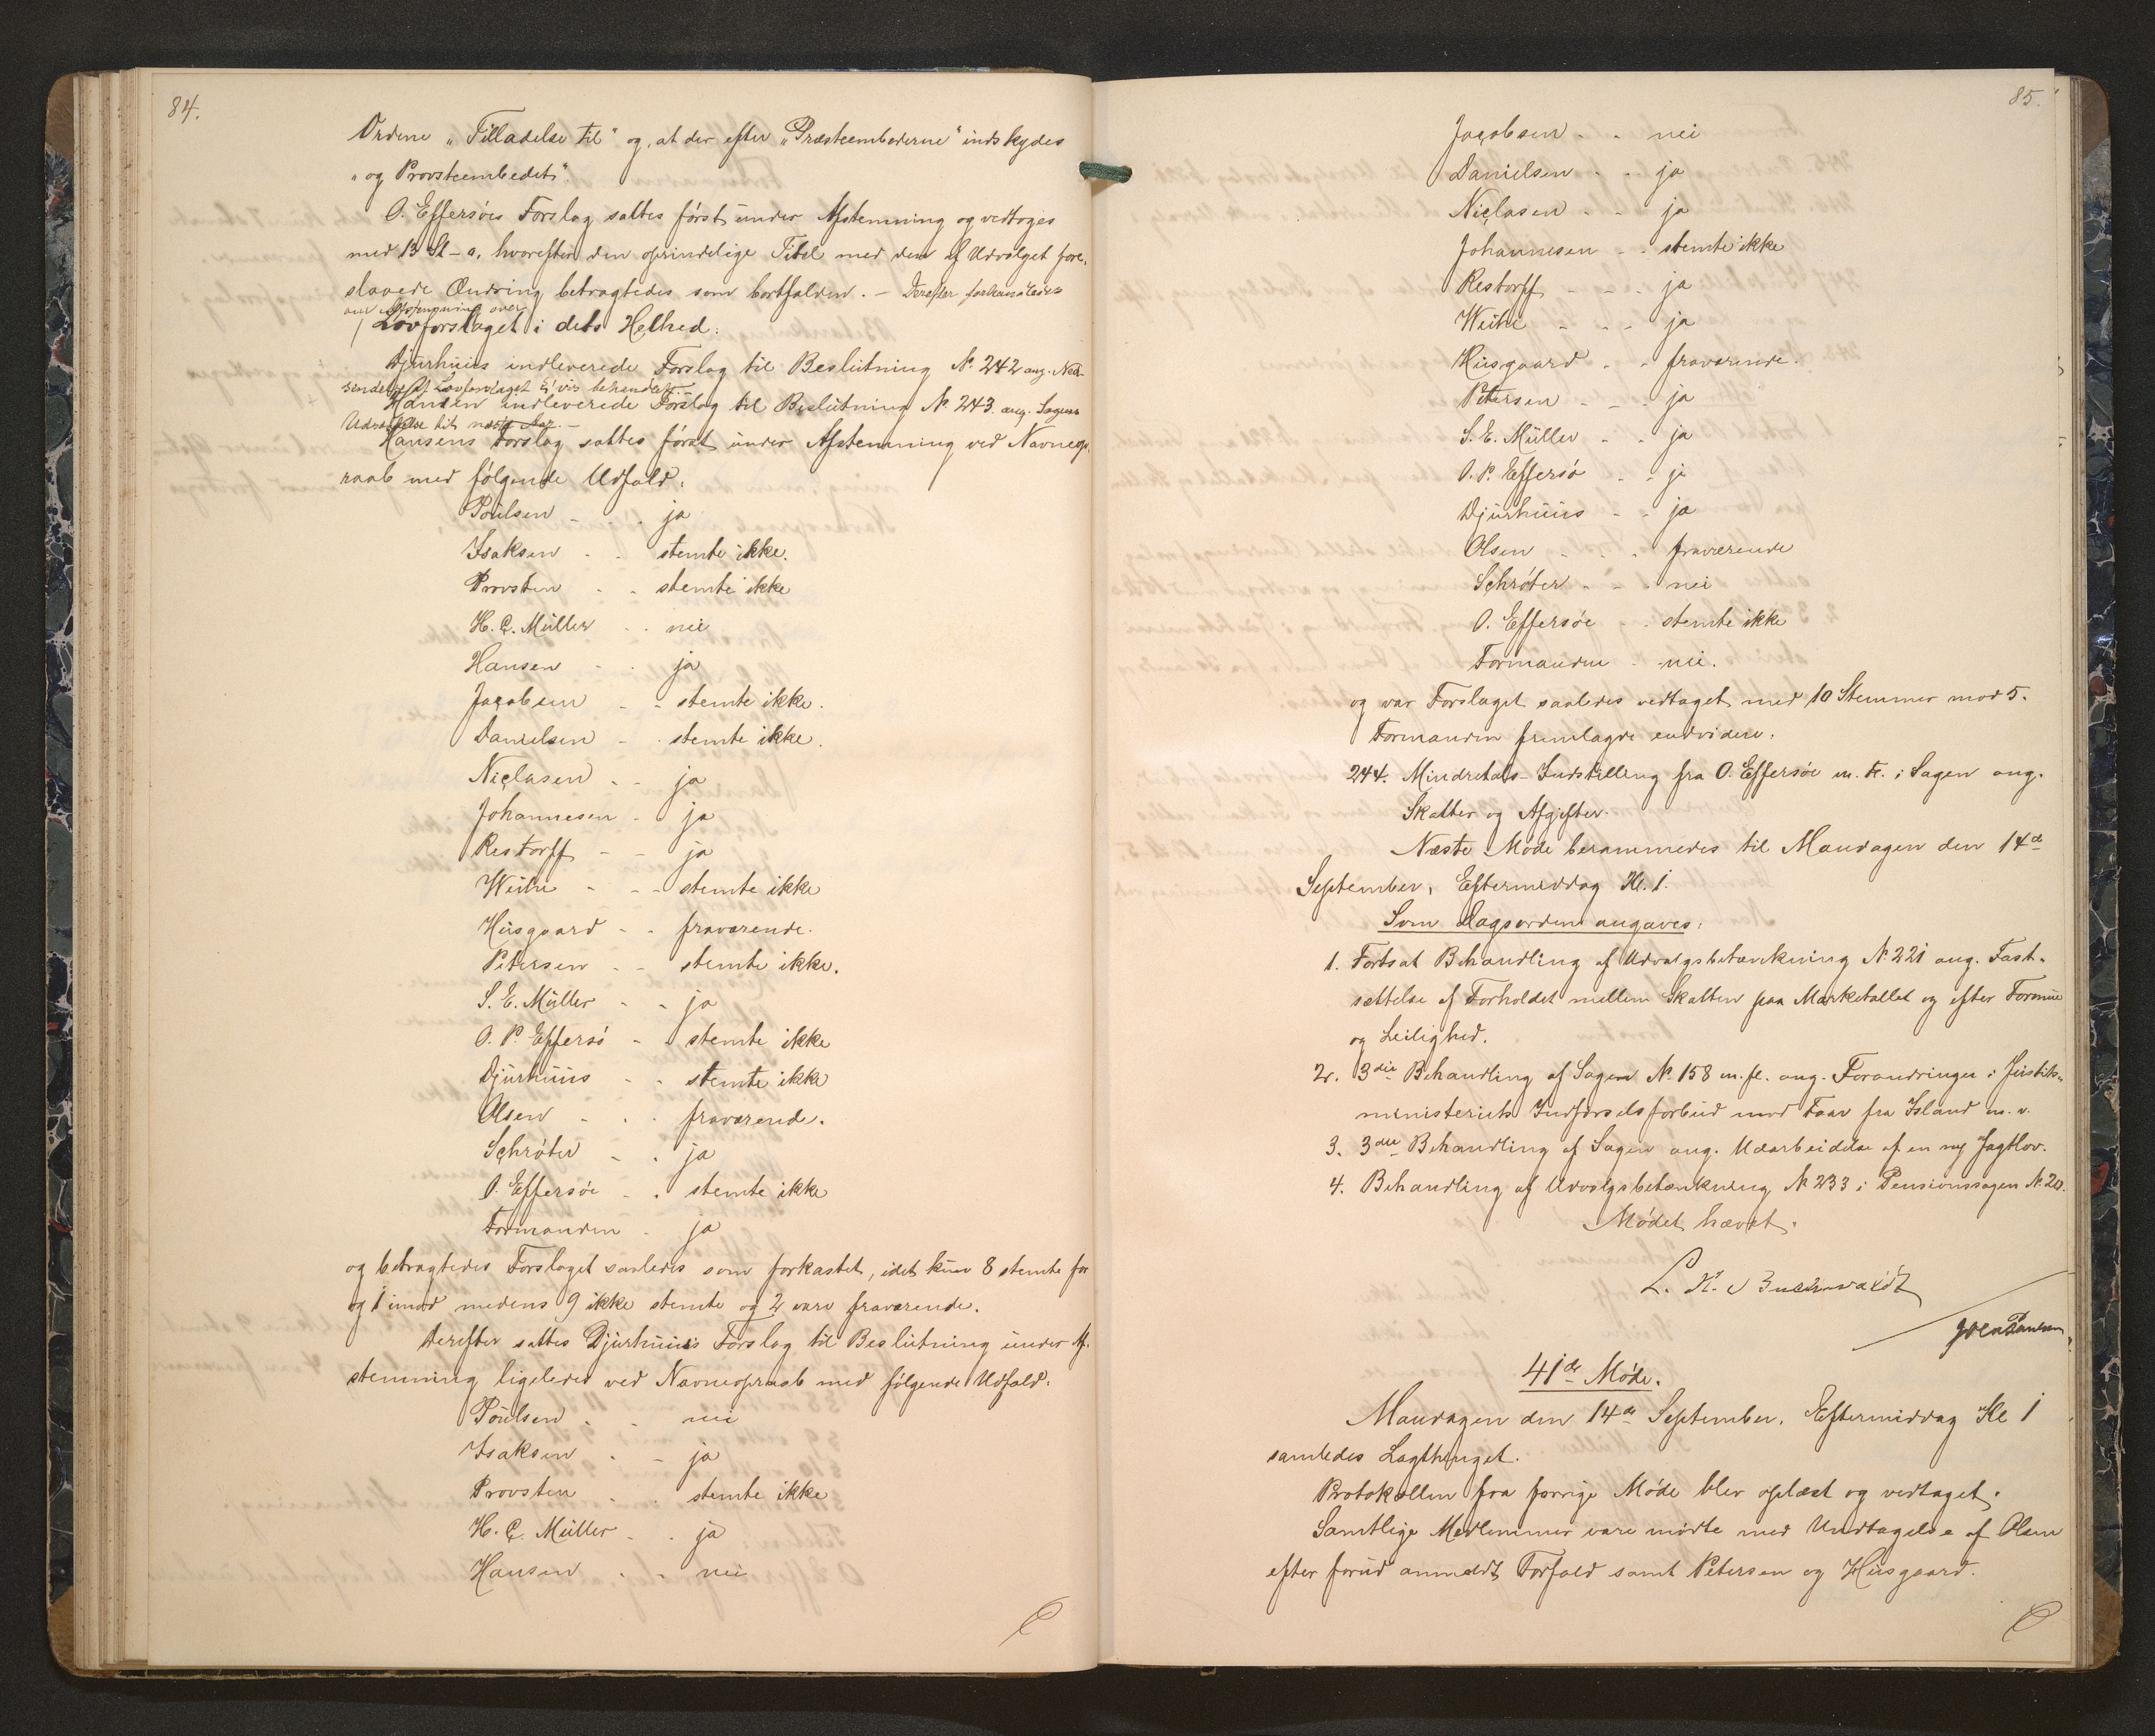 84.
Ordene „Tilladelse til" og, at der efter „Præsteembederne" indskydes
„og Provsteembedet".
O. Effersøes Forslag sattes først under Afstemning og vedtoges
med 13 St-a, hvorefter den oprindelige Titel med den af Udvalget fore-
slaaede Ændring betragtedes som bortfalden. - Derefter forhandledes
om Afstemning over
Lovforslaget i dets Helhed.
Djurhuus indleverede Forslag til Beslutning No. 242 ang. Ned-
sendelse af Lovforslaget behandlet. -
Hansen indleverede Forslag til Beslutning No. 243. ang. Sagens
Udsættelse til næste Aar. -
Hansens Forslag sattes først under Afstemning ved Navneop-
raab med følgende Udfald:
Poulsen - - - ja
Isaksen - - stemte ikke.
Provsten - - stemte ikke
H. C. Müller - - nei
Hansen - - ja
Jacobsen - - stemte ikke.
Danielsen - - stemte ikke.
Niclasen - - ja
Johannesen - ja
Restorff - - ja
Weihe - - - stemte ikke
Husgaard - - fraværende.
Petersen - - stemte ikke.
S. E. Müller - - ja
O. P. Effersø - - stemte ikke
Djurhuus - - stemte ikke
Olsen - - - fraværende.
Schrøter - - ja
O. Effersøe - - stemte ikke
Formanden - ja
og betragtedes Forslaget saaledes som forkastet, idet kun 8 stemte for
og 1 imod medens 9 ikke stemte og 2 vare fraværende.
Derefter sattes Djurhuus's Forslag til Beslutning under Af-
stemning ligeledes ved Navneopraab med følgende Udfald:
Poulsen - - nei
Isaksen - - ja
Provsten - - stemte ikke
H. C. Müller - - ja
Hansen - - nei
85.
Jacobsen - - nei
Danielsen - - ja
Niclasen - - ja
Johannesen - - stemte ikke
Restorff - - - ja
Weihe - - - ja
Husgaard - - fraværende.
Petersen - - - ja
S. E. Müller - - ja
O. P. Effersø - - ja
Djurhuus - - ja
Olsen - - - fraværende
Schrøter - - - nei
O. Effersøe - - stemte ikke
Formanden - nei.
og var Forslaget saaledes vedtaget med 10 Stemmer mod 5.
Formanden fremlagde endvidere:
244. Mindretals-Indstilling fra O. Effersøe m. fl. i Sagen ang.
Skatter og Afgifter.
Næste Møde berammedes til Mandagen den 14de
September, Eftermiddag Kl. 1.
Som Dagsorden angaves:
1. Fortsat Behandling af Udvalgsbetænkning No 221 ang. Fast-
sættelse af Forholdet mellem Skatten paa Marketallet og efter Formue
og Leilighed.
2. 3die Behandling af Sagen No. 158 m. fl. ang. Forandringer i Justits-
ministeriets Indførselsforbud mod Faar fra Island m. v.
3. 3die Behandling af Sagen ang. Udarbeidelse af en ny Jagtlov.
4. Behandling af Udvalgsbetænkning No 233 i Pensionssagen No. 20.
Mødet hævet.
L. K. Buchwaldt
41de Møde.
Mandagen den 14de September, Eftermiddag Kl 1
samledes Lagthinget.
Protokollen fra forrige Møde blev oplæst og vedtaget.
Samtlige Medlemmer vare mødte med Undtagelse af Olsen
efter forud anmeldt Forfald samt Petersen og Husgaard.